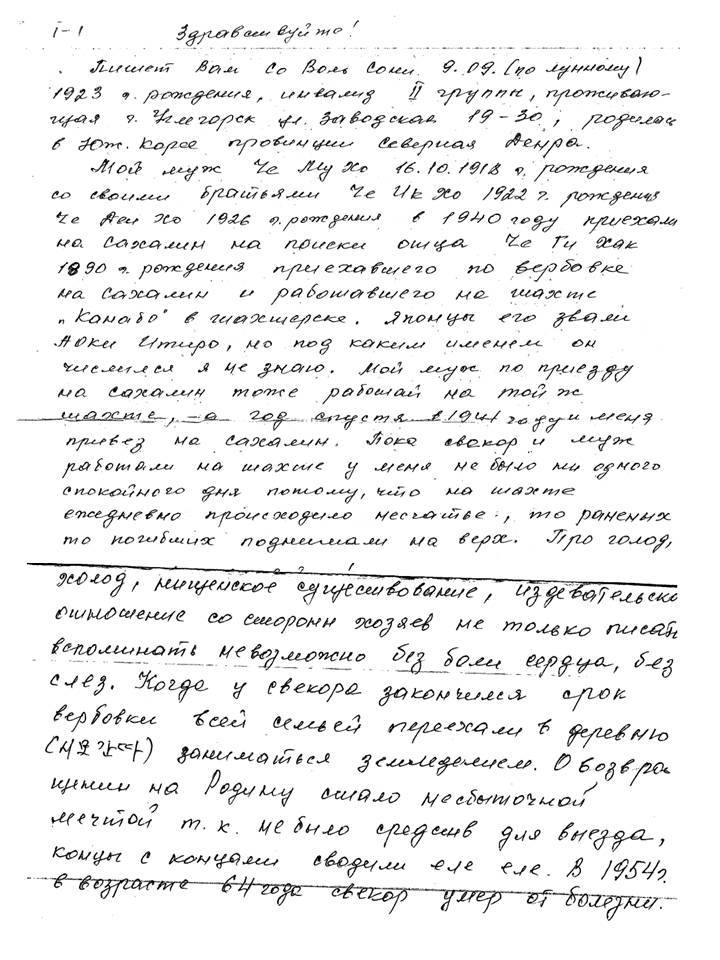 I-1 Здравствуйте!
Пишет Вам Со Воль Сони 9.09. (по лунному)
1923 г. рождения, инвалид II группы, проживаю-
щая г. Углегорск ул. Заводская 19-30, родилась
в Юж. Корее провинции северная Денра.
Мой муж Че Му Хо 16.10.1918 г. рождения
со своими братьями Че Ик Хо 1922 г. рождения
Че Хо 1926 г. рождения в 1940 году приехали
на Сахалин на поиски отца Че Ги Хак
1890 г. рождения приехавшего по вербовке
на Сахалин и работавшего на шахте
„Канабо" в шахтерске. Японцы его звали
Аоки Итиро, но под каким именем он
числился я не знаю. Мой муж по приезду
на Сахалин тоже работай на той ж
шахте, -а год спустя в 1941 году и меня
привез на Сахалин. Пока свекор и муж
работали на шахте у меня не было ни одного
спокойного дня потому, что на шахте
ежедневно происходило несчатье, то раненых
то погибших поднимали на верх. Про голод,
холод, нищенское существование, издевательско
отношение со стороны хозяев не только писать
вспоминать невозможно без боли сердца, без
слез. Когда у свекора закончился срок
вербовки всей семьей переехали в деревню
(시오간따) заниматься земледелием. О возвра
щении на Родину стало несбыточной
мечтой т.к. не было средств для выезда,
концы с концами сводили еле еле. В 1954г.
в возрасте 64 года свекор умер от болезни.